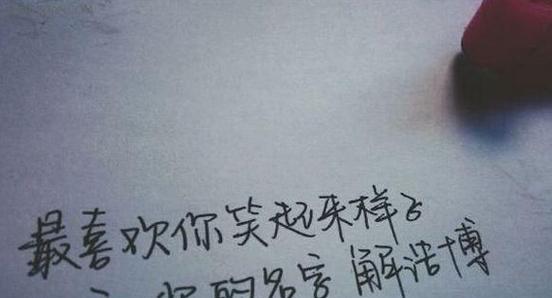 最喜欢你笑起来样子
的名字 解浩博